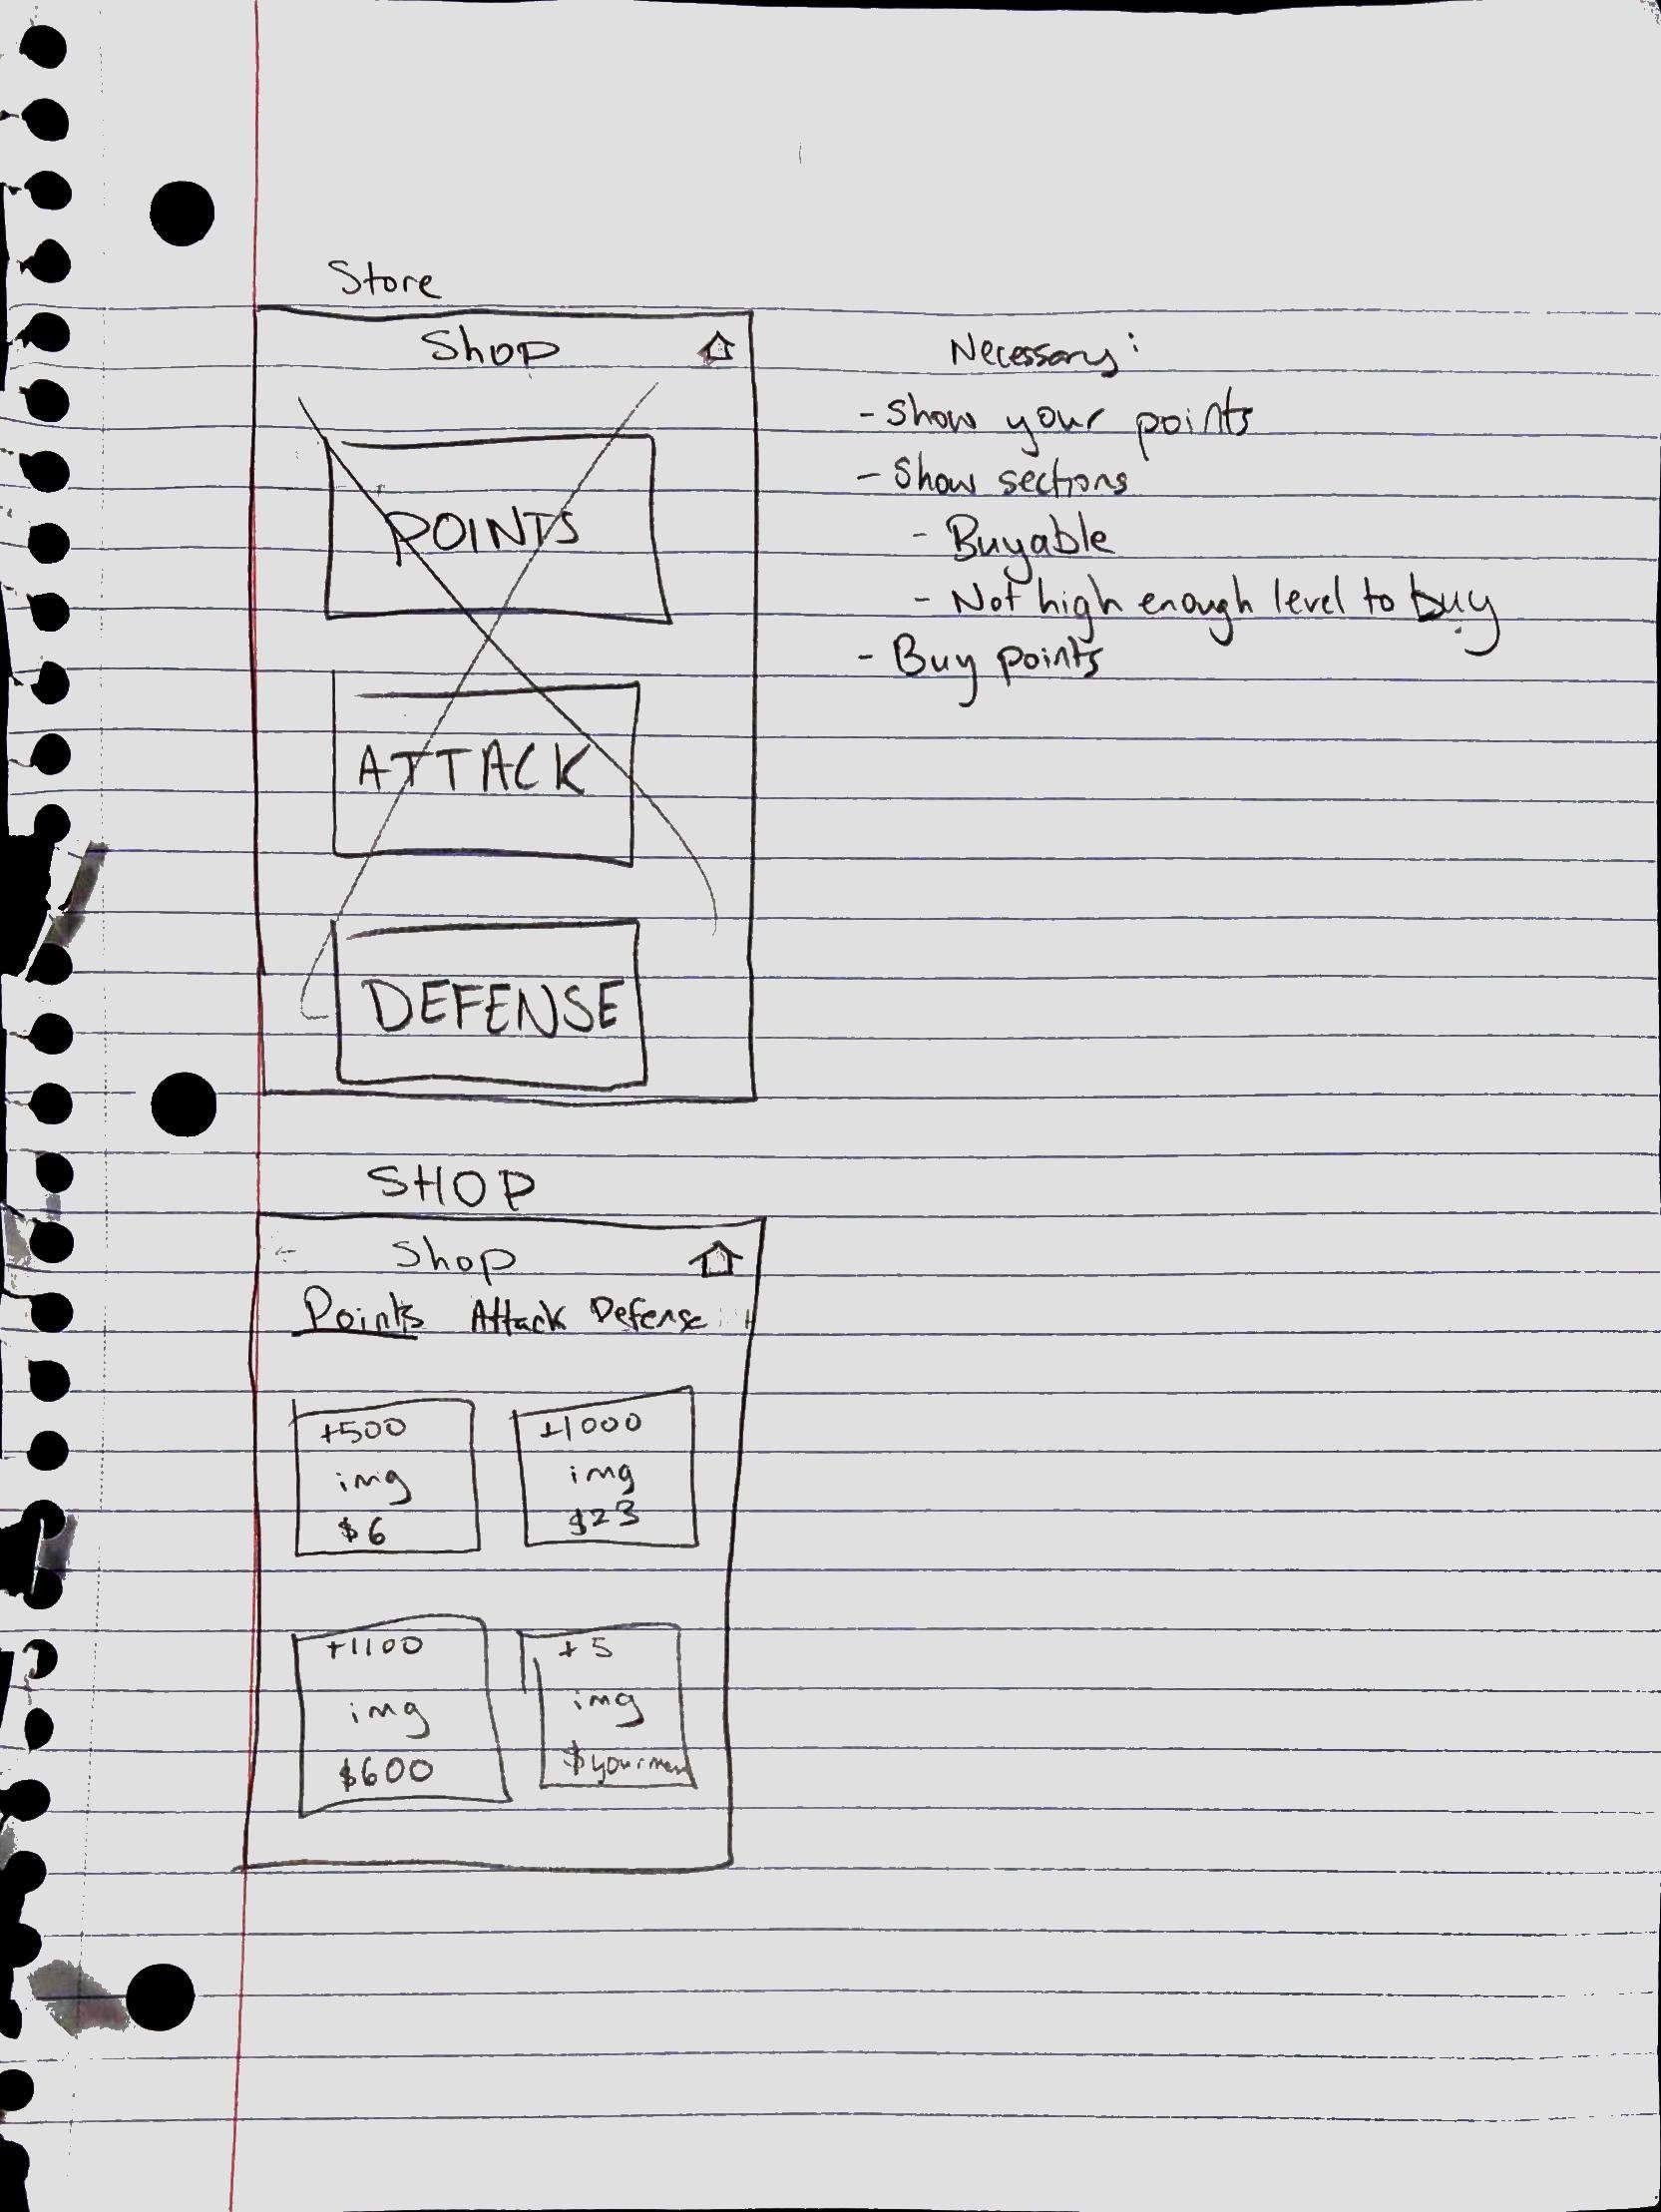 Store
Shop
POINTS
ATTACK
DEFENSE
Necessary:
- Show your points
- Show sections
- Buyable
- Not high enough level to buy
- Buy points
SHOP
← Shop
Points Attack Defense
+500
img
$6
+1000
img
$23
+1100
img
$600
+5
img
$your